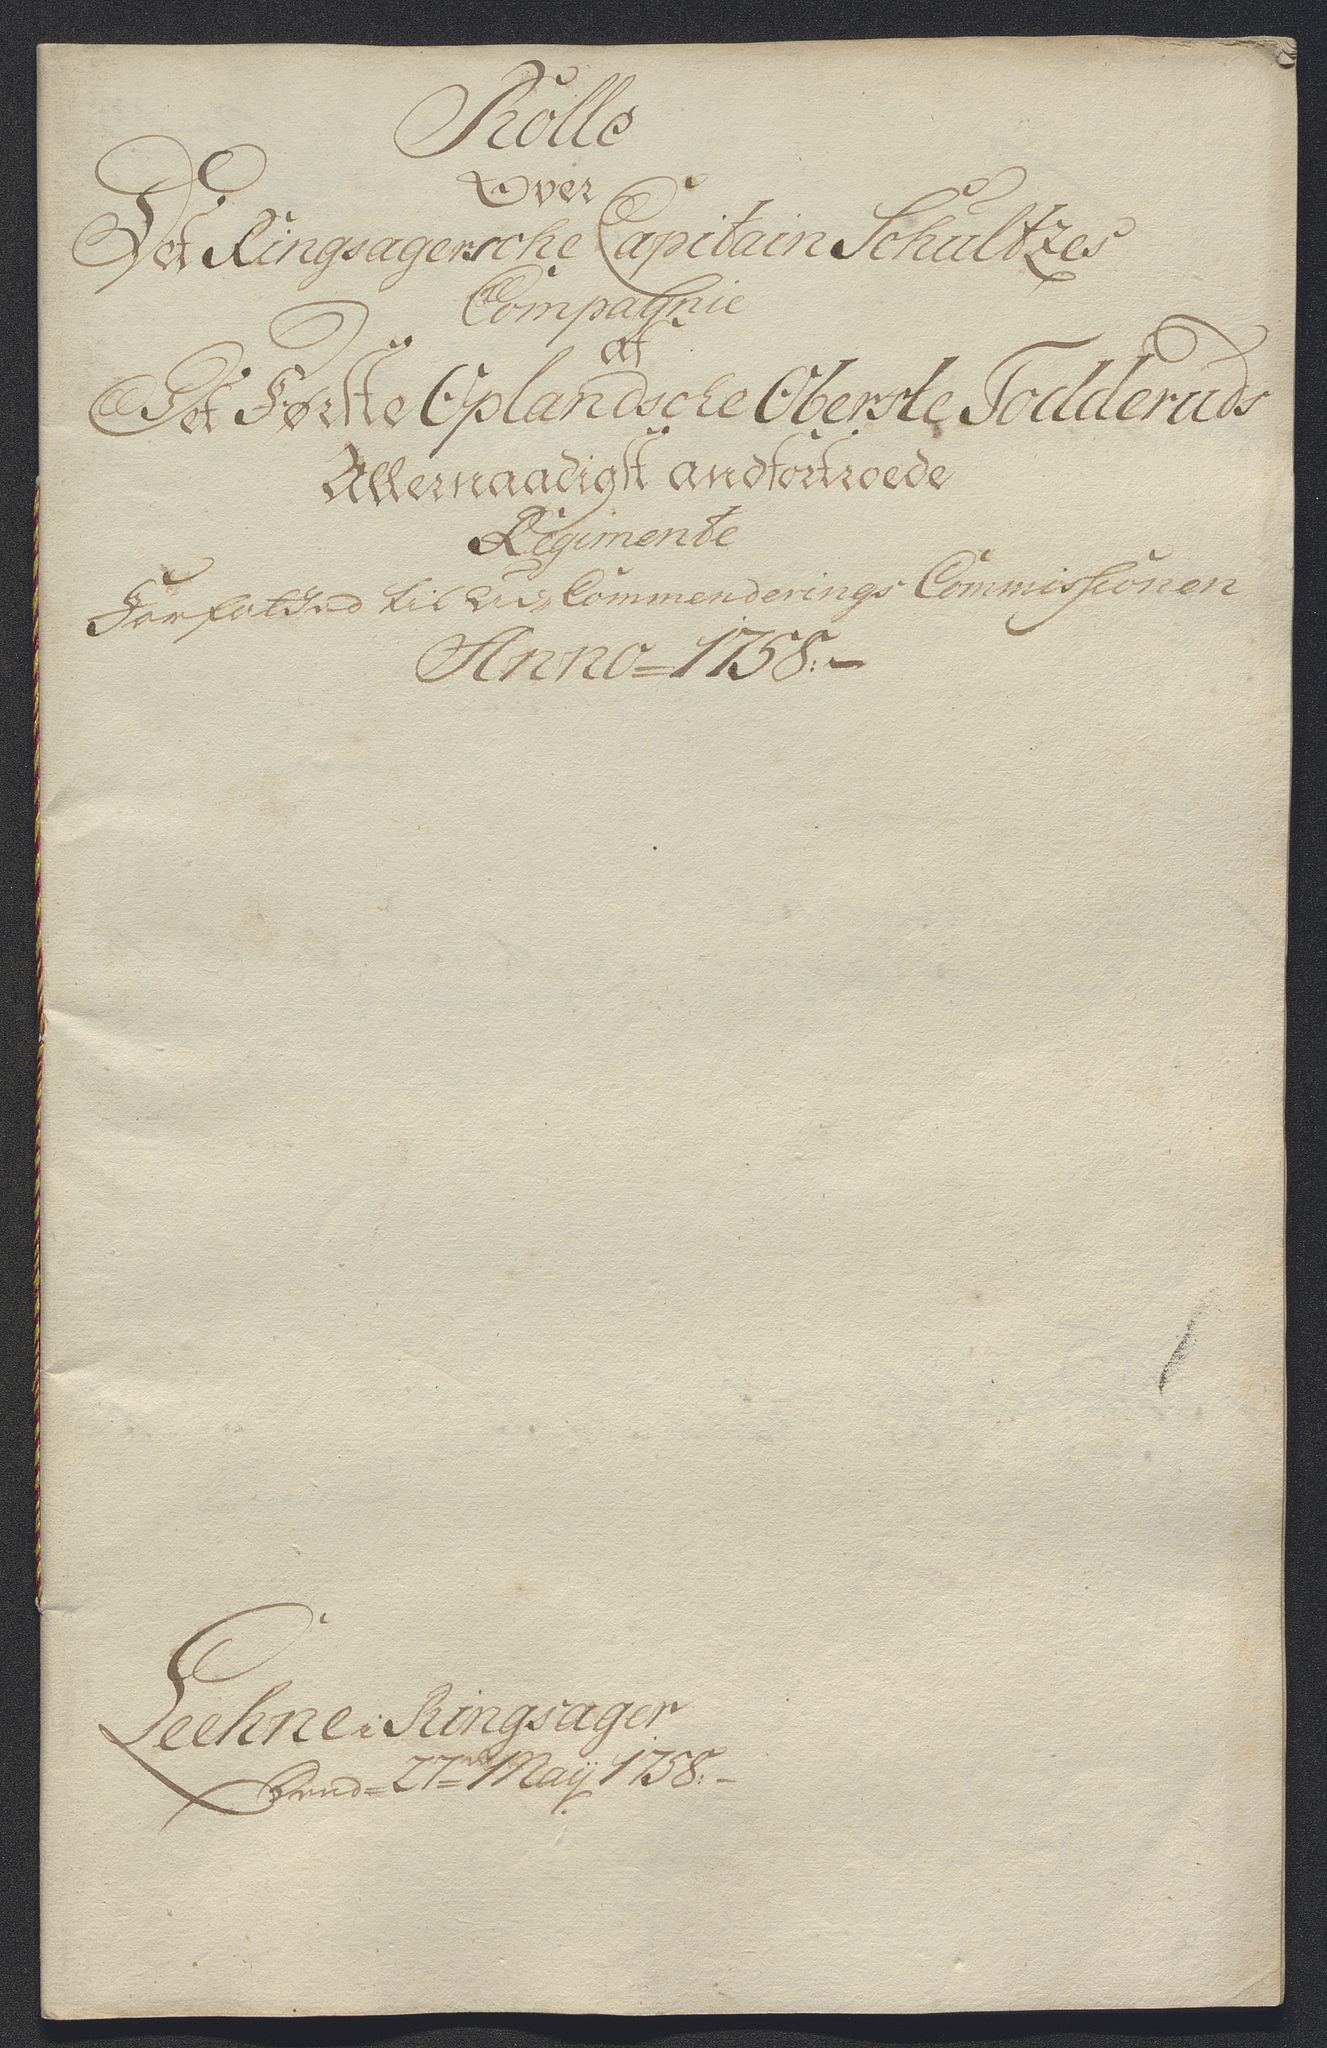 Rolle
Over
Det Ringsagersche Capitain Schultzes
Compagnie
af
Det Første Oplandsche Oberste Todderuds
Allernaadigst andfortroede
Regimente
Forfatted til Commenderings Commissionen
Anno = 1758:-
Leehne i Ringsager
27 Maij 1758:-